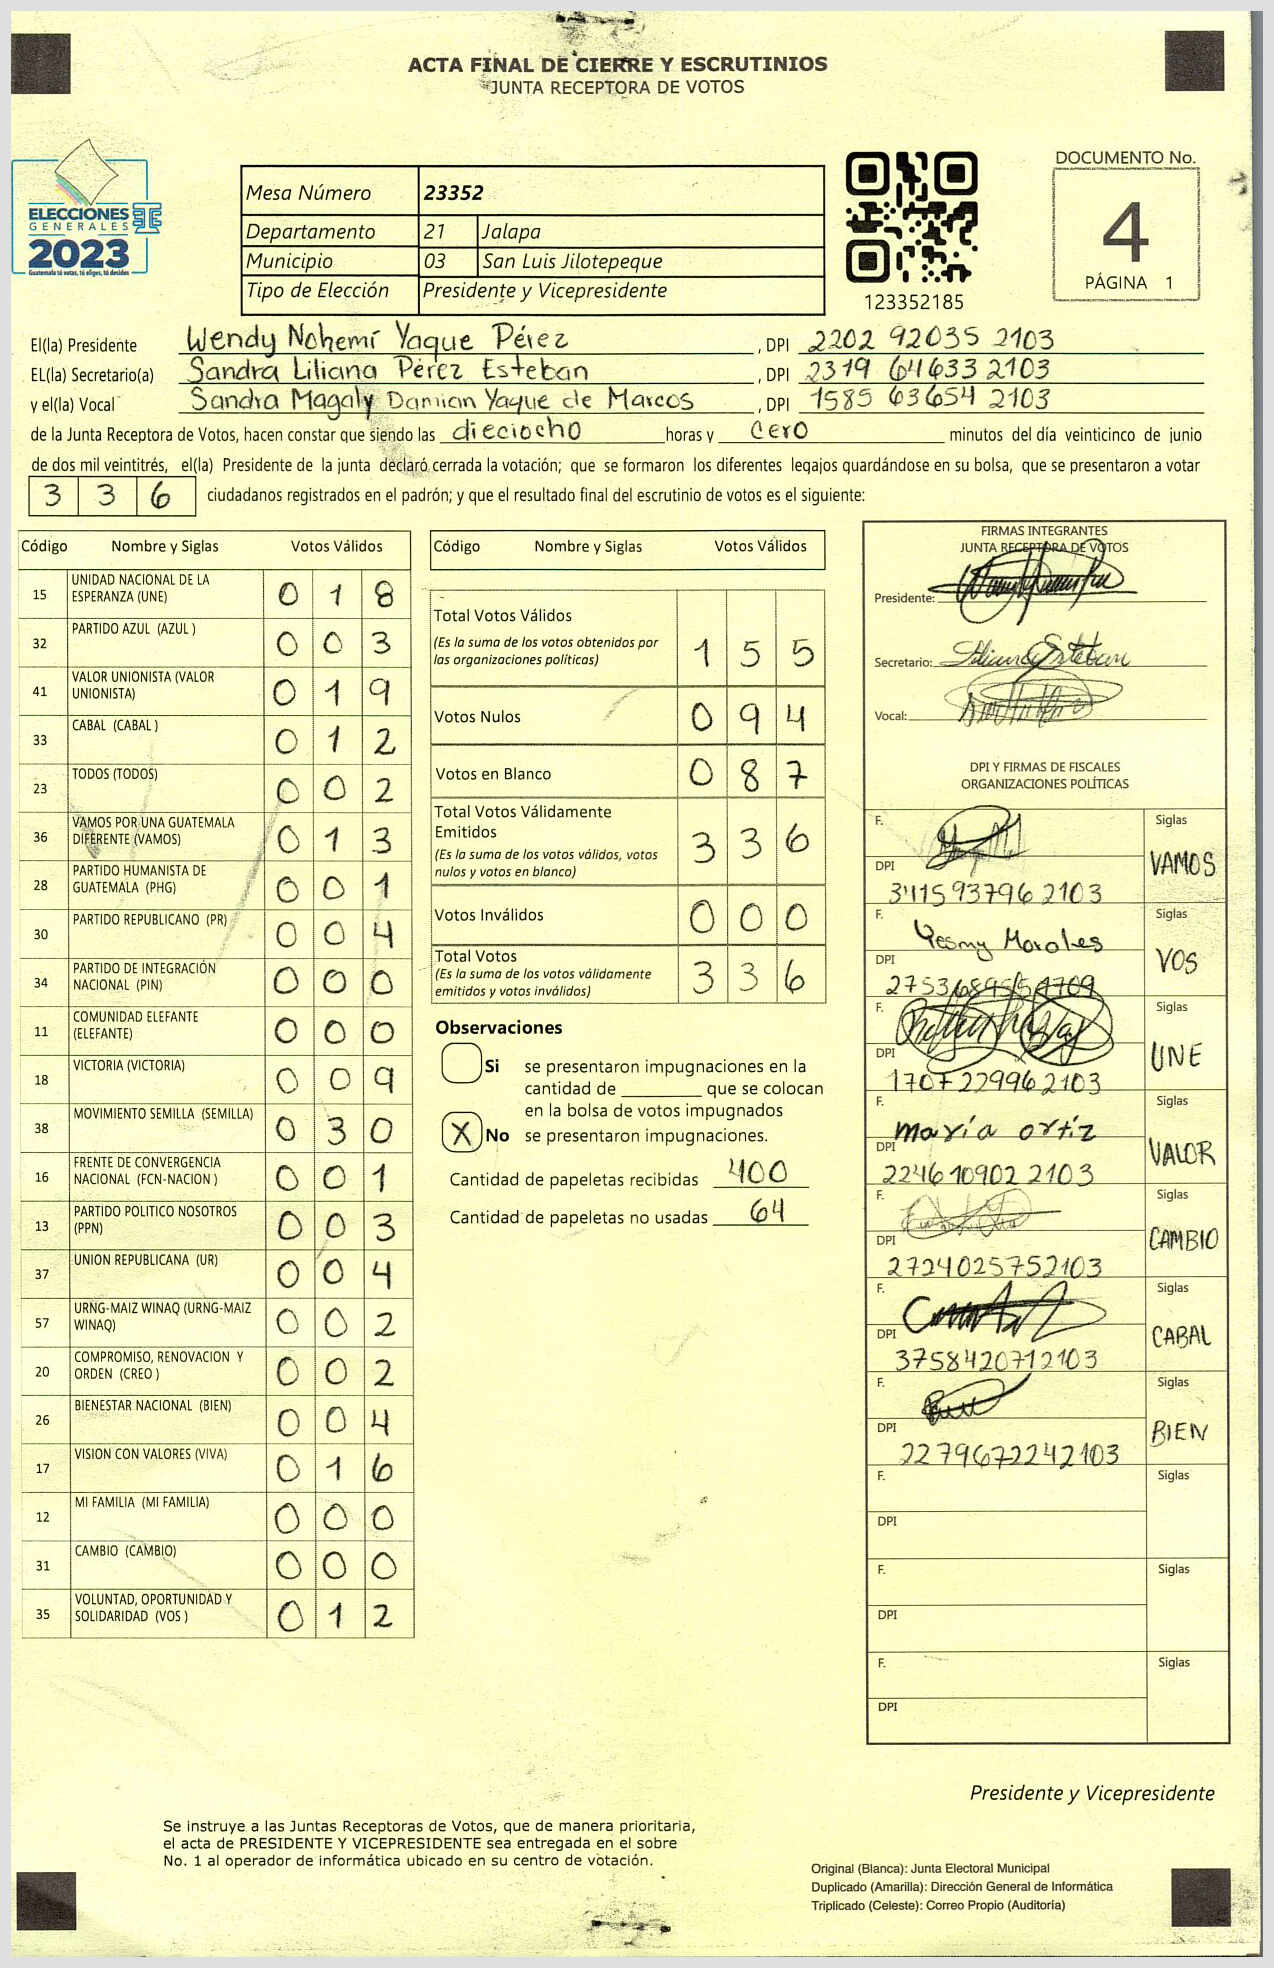 ACTA FINAL DE CIERRE Y ESCRUTINIOS
JUNTA RECEPTORA DE VOTOS
ELECCIONES
GENERALES
2023
Guatemala tú votas, tú eliges, tú decides
Mesa Número 23352
Departamento 21 Jalapa
Municipio 03 San Luis Jilotepeque
Tipo de Elección Presidente y Vicepresidente
123352185
DOCUMENTO No.
4
PÁGINA 1
El(la) Presidente Wendy Nohemí Yaque Pérez , DPI 2202 92035 2103
EL(la) Secretario(a) Sandra Liliana Pérez Esteban , DPI 2319 64633 2103
y el(la) Vocal Sandra Magaly Damian Yaque de Marcos , DPI 1585 63654 2103
de la Junta Receptora de Votos, hacen constar que siendo las dieciocho horas y cero minutos del día veinticinco de junio
de dos mil veintitrés, el(la) Presidente de la junta declaró cerrada la votación; que se formaron los diferentes legajos guardándose en su bolsa, que se presentaron a votar
3 3 6 ciudadanos registrados en el padrón; y que el resultado final del escrutinio de votos es el siguiente:
Código Nombre y Siglas Votos Válidos
15 UNIDAD NACIONAL DE LA ESPERANZA (UNE) 0 1 8
32 PARTIDO AZUL (AZUL ) 0 0 3
41 VALOR UNIONISTA (VALOR UNIONISTA) 0 1 9
33 CABAL (CABAL ) 0 1 2
23 TODOS (TODOS) 0 0 2
36 VAMOS POR UNA GUATEMALA DIFERENTE (VAMOS) 0 1 3
28 PARTIDO HUMANISTA DE GUATEMALA (PHG) 0 0 1
30 PARTIDO REPUBLICANO (PR) 0 0 4
34 PARTIDO DE INTEGRACIÓN NACIONAL (PIN) 0 0 0
11 COMUNIDAD ELEFANTE (ELEFANTE) 0 0 0
18 VICTORIA (VICTORIA) 0 0 9
38 MOVIMIENTO SEMILLA (SEMILLA) 0 3 0
16 FRENTE DE CONVERGENCIA NACIONAL (FCN-NACION ) 0 0 1
13 PARTIDO POLITICO NOSOTROS (PPN) 0 0 3
37 UNION REPUBLICANA (UR) 0 0 4
57 URNG-MAIZ WINAQ (URNG-MAIZ WINAQ) 0 0 2
20 COMPROMISO, RENOVACION Y ORDEN (CREO ) 0 0 2
26 BIENESTAR NACIONAL (BIEN) 0 0 4
17 VISION CON VALORES (VIVA) 0 1 6
12 MI FAMILIA (MI FAMILIA) 0 0 0
31 CAMBIO (CAMBIO) 0 0 0
35 VOLUNTAD, OPORTUNIDAD Y SOLIDARIDAD (VOS ) 0 1 2
Código Nombre y Siglas Votos Válidos
Total Votos Válidos
(Es la suma de los votos obtenidos por
las organizaciones políticas) 1 5 5
Votos Nulos 0 9 4
Votos en Blanco 0 8 7
Total Votos Válidamente
Emitidos
(Es la suma de los votos válidos, votos
nulos y votos en blanco) 3 3 6
Votos Inválidos 0 0 0
Total Votos
(Es la suma de los votos válidamente
emitidos y votos inválidos) 3 3 6
Observaciones
Si se presentaron impugnaciones en la
cantidad de que se colocan
en la bolsa de votos impugnados
X No se presentaron impugnaciones.
Cantidad de papeletas recibidas 400
Cantidad de papeletas no usadas 64
FIRMAS INTEGRANTES
JUNTA RECEPTORA DE VOTOS
Presidente:
Secretario: Esteban
Vocal:
DPI Y FIRMAS DE FISCALES
ORGANIZACIONES POLÍTICAS
F. Siglas
DPI VAMOS
3411593796 2103
F. Yesmy Morales Siglas
DPI VOS
F. Siglas
DPI UNE
1707229962103
F. Siglas
maría ortiz
DPI VALOR
2246109022103
F. Siglas
DPI CAMBIO
2724025752103
F. Siglas
DPI CABAL
3758420712103
F. Siglas
DPI BIEN
2279672242103
F. Siglas
DPI
F. Siglas
DPI
F. Siglas
DPI
Presidente y Vicepresidente
Se instruye a las Juntas Receptoras de Votos, que de manera prioritaria,
el acta de PRESIDENTE Y VICEPRESIDENTE sea entregada en el sobre
No. 1 al operador de informática ubicado en su centro de votación.
Original (Blanca): Junta Electoral Municipal
Duplicado (Amarilla): Dirección General de Informática
Triplicado (Celeste): Correo Propio (Auditoría)